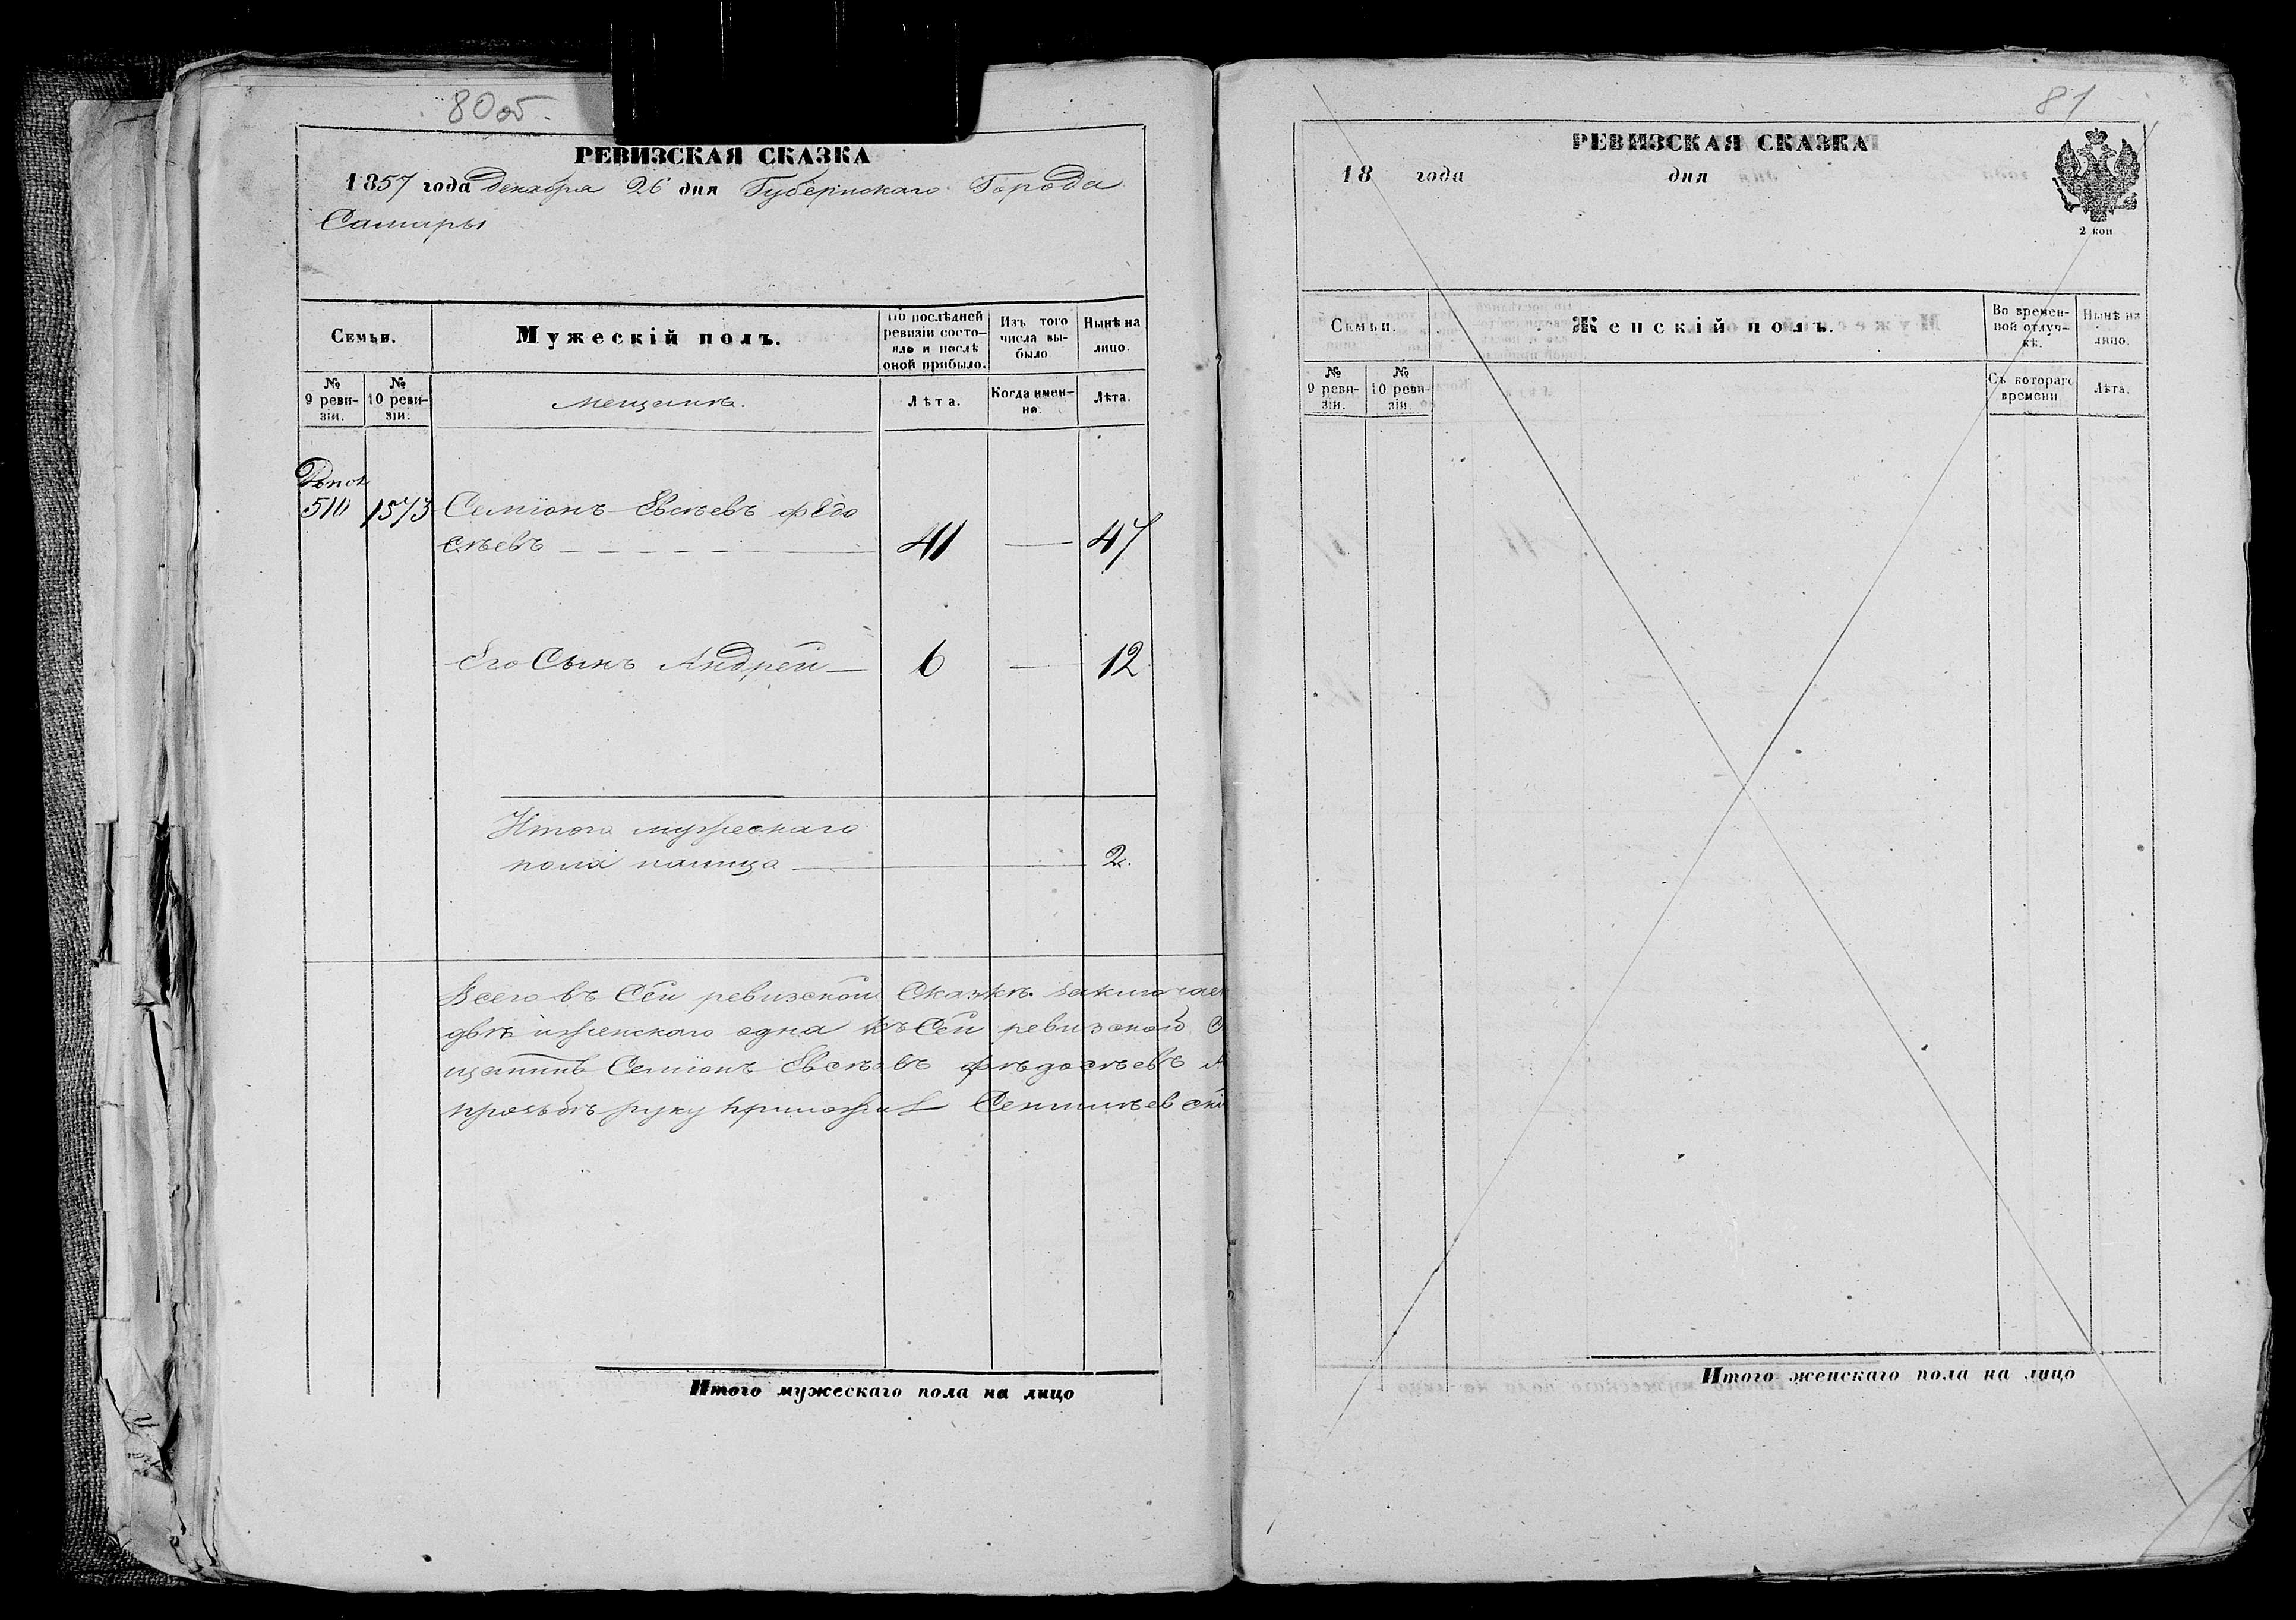 80об.
РЕВИЗСКАЯ СКАЗКА
1857 года декабря 26 дня Губернскаго Города
Самары
Семьи.
Мужескій полъ.
По послѣдней ревизіи состо-
яло и послѣ
оной прибыло.
Изъ того
числа вы-
было
Нынѣ на
лицо.
№
9 реви-
зіи.
№
10 реви-
зіи.
Мещанъ.
Лѣта.
Когда имен-
но.
Лѣта.
510 1573 Семіонъ Евсѣевъ фѣдо
сѣевъ 41 47
Его Сынъ Андрей 6 12
Итого мужескаго
пола налицо 2.
Всего въ Сей ревизской Сказкѣ заключает
двѣ иженского одна къ Сей ревизской
щанинъ Семіонъ Евсѣевъ фѣдосѣевъ
прозьбѣ руку приложил
Итого мужескаго пола на лицо
81
РЕВИЗСКАЯ СКАЗКА
18 года дня
2 коп
Семьи.
Женскій полъ.
Во времен-
ной отлуч-
кѣ.
Нынѣ на
лицо.
№
9 реви-
зіи.
№
10 реви-
зіи.
Съ котораго
времени
Лѣта.
Итого женскаго пола на лицо